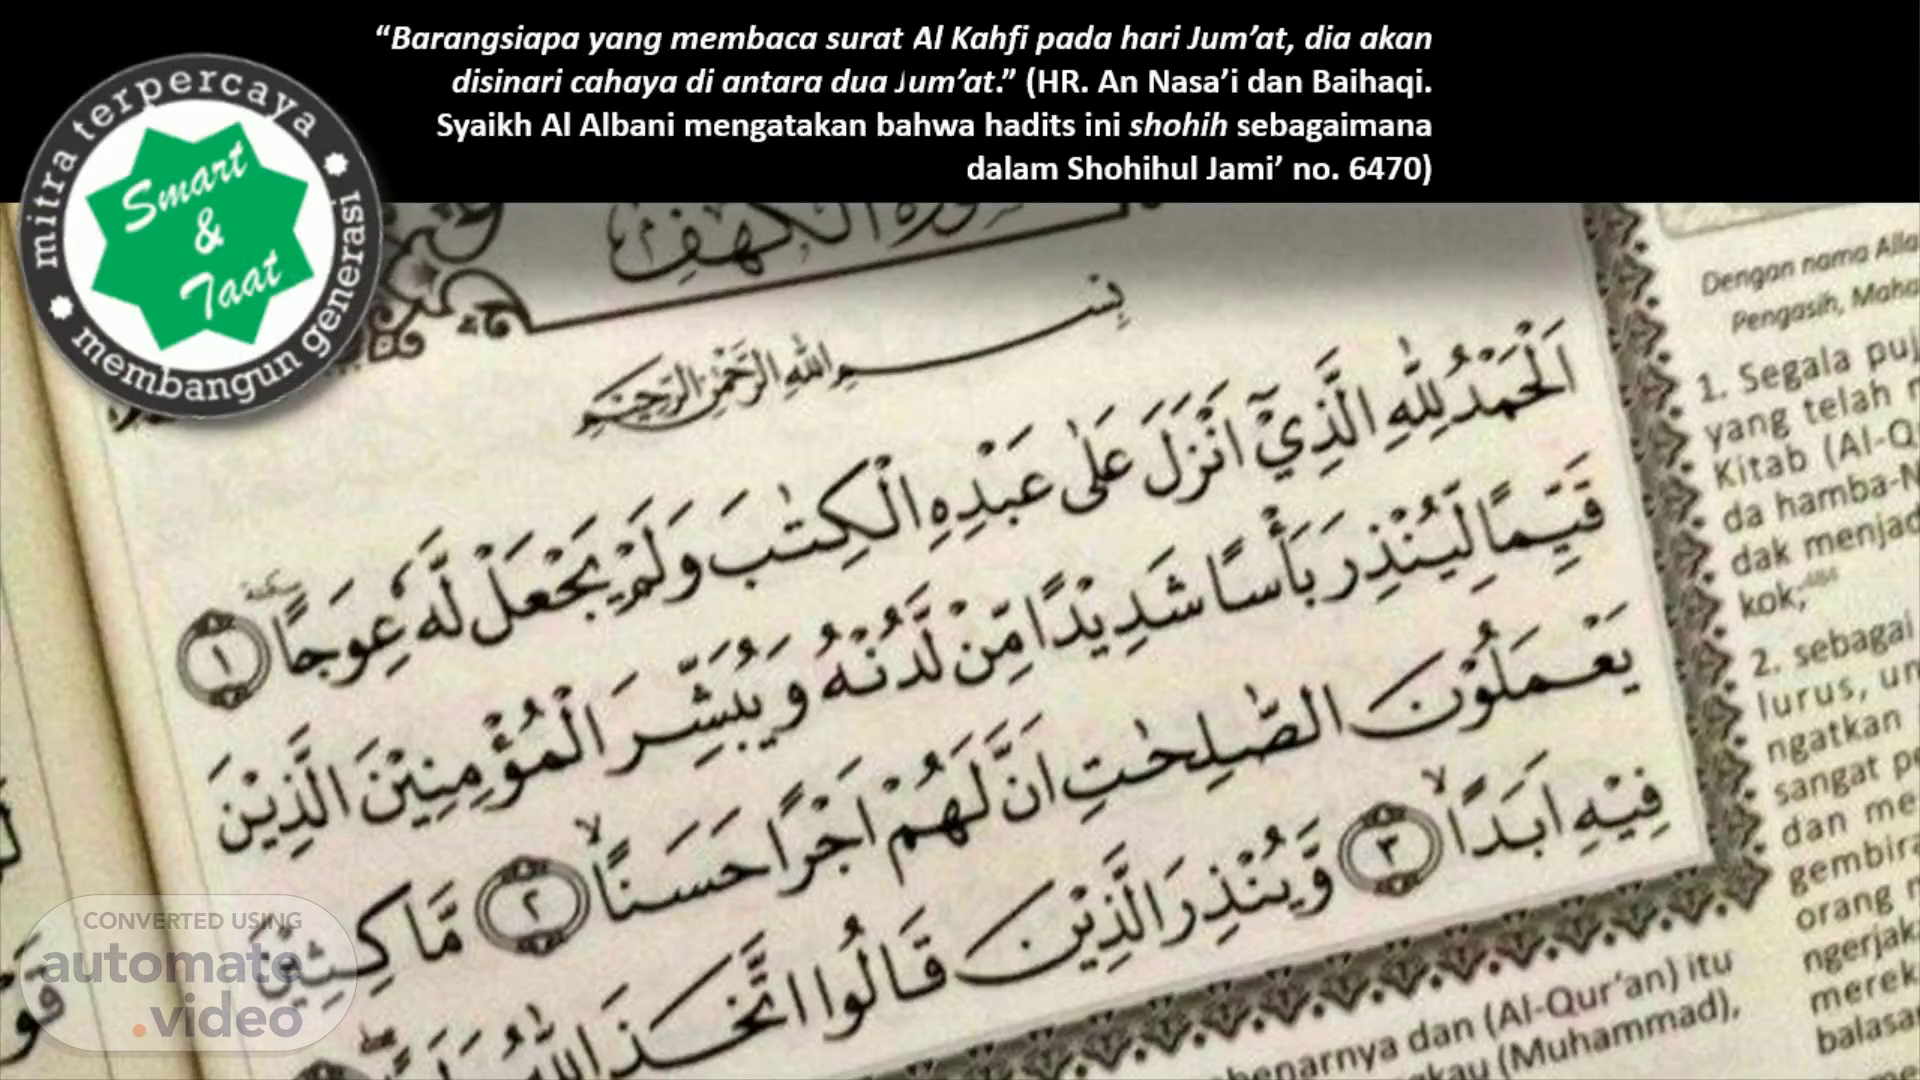 “Barangsiapa yang membaca surat Al Kahfi pada hari Jum’at, dia akan
disinari cahaya di antara dua Jum’at.” (HR. An Nasa’i dan Baihaqi.
Syaikh Al Albani mengatakan bahwa hadits ini shohih sebagaimana
dalam Shohihul Jami’ no. 6470)
mitra terpercaya
Smart
&
Taat
membangun generasi
سورة الكهف
بِسْمِ اللهِ الرَّحْمٰنِ الرَّحِيْمِ
اَلْحَمْدُ لِلّٰهِ الَّذِيْٓ اَنْزَلَ عَلٰى عَبْدِهِ الْكِتٰبَ وَلَمْ يَجْعَلْ لَّهٗ عِوَجًا ۜ ١
قَيِّمًا لِّيُنْذِرَ بَأْسًا شَدِيْدًا مِّنْ لَّدُنْهُ وَيُبَشِّرَ الْمُؤْمِنِيْنَ الَّذِيْنَ
يَعْمَلُوْنَ الصّٰلِحٰتِ اَنَّ لَهُمْ اَجْرًا حَسَنًاۙ ٢ مَّاكِثِيْنَ
فِيْهِ اَبَدًاۙ ٣ وَّيُنْذِرَ الَّذِيْنَ قَالُوا اتَّخَذَ اللّٰهُ وَلَدًا
Dengan nama Alla
Pengasih, Maha
1. Segala puj
yang telah
Kitab (Al-Q
da hamba-N
dak menjad
kok;
2. sebagai
lurus, un
ngatkan
sangat pe
dan me
gembira
orang
ngerjak
merek
balasa
benarnya dan (Al-Qur’an) itu
gkau (Muhammad),
CONVERTED USING
automate
.video